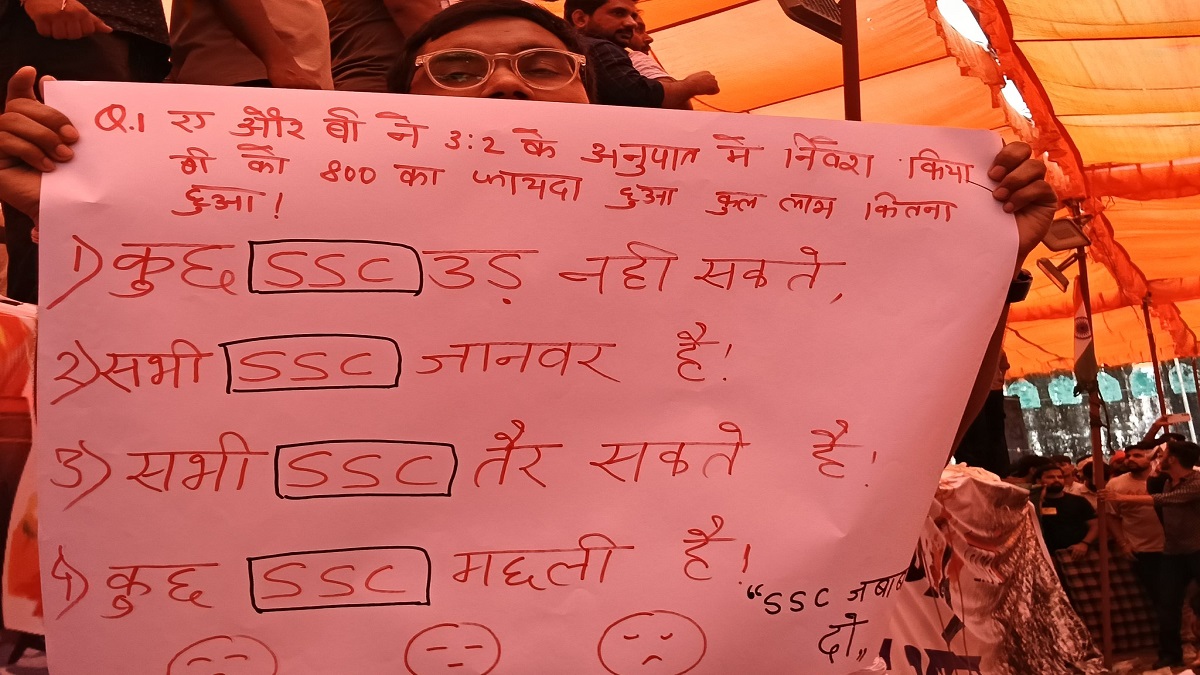 Q.1 ए और बी ने 3:2 के अनुपात में निवेश किया
बी को 800 का फायदा हुआ कुल लाभ कितना
हुआ!
1) कुछ SSC उड़ नही सकते,
2) सभी SSC जानवर है!
3) सभी SSC तैर सकते है!
4) कुछ SSC मछली है!
"SSC जबाब
दो"